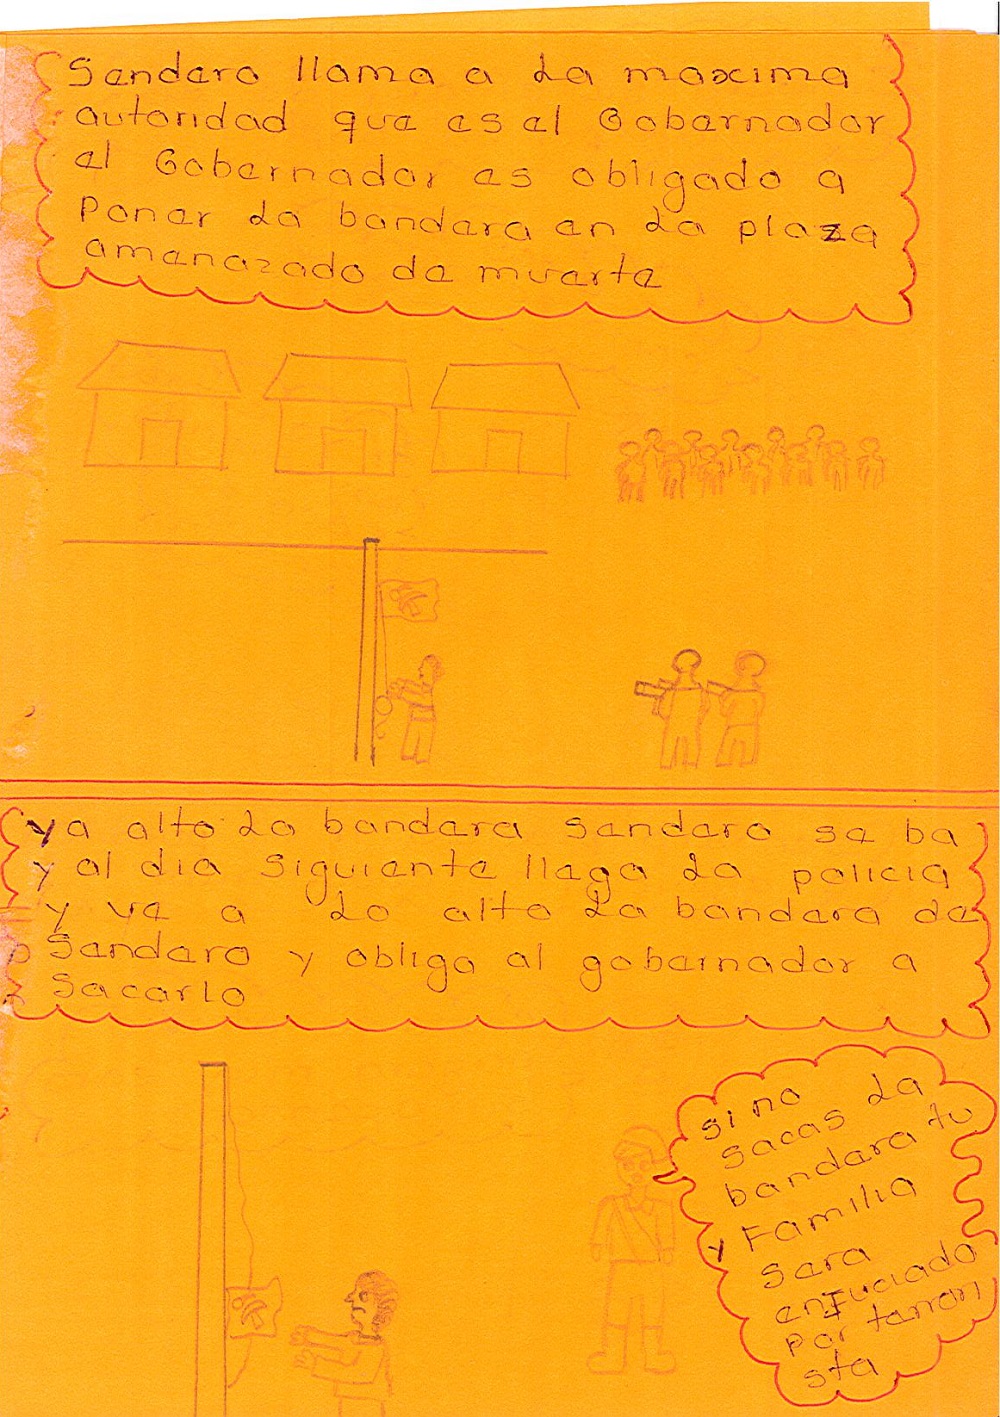 Sendero llama a La maxima
autoridad que es el Gobernador
el Gobernador es obligado a
Poner La bandera en La plaza
amenazado de muerte
ya alto La bandera Sendero se ba
y al dia Siguiente llega La policia
y ve a Lo alto La bandera de
Sendero y obliga al gobernador a
Sacarlo
si no
sacas La
bandera tu
y Familia
sera
enjuciado
por terrori
sta